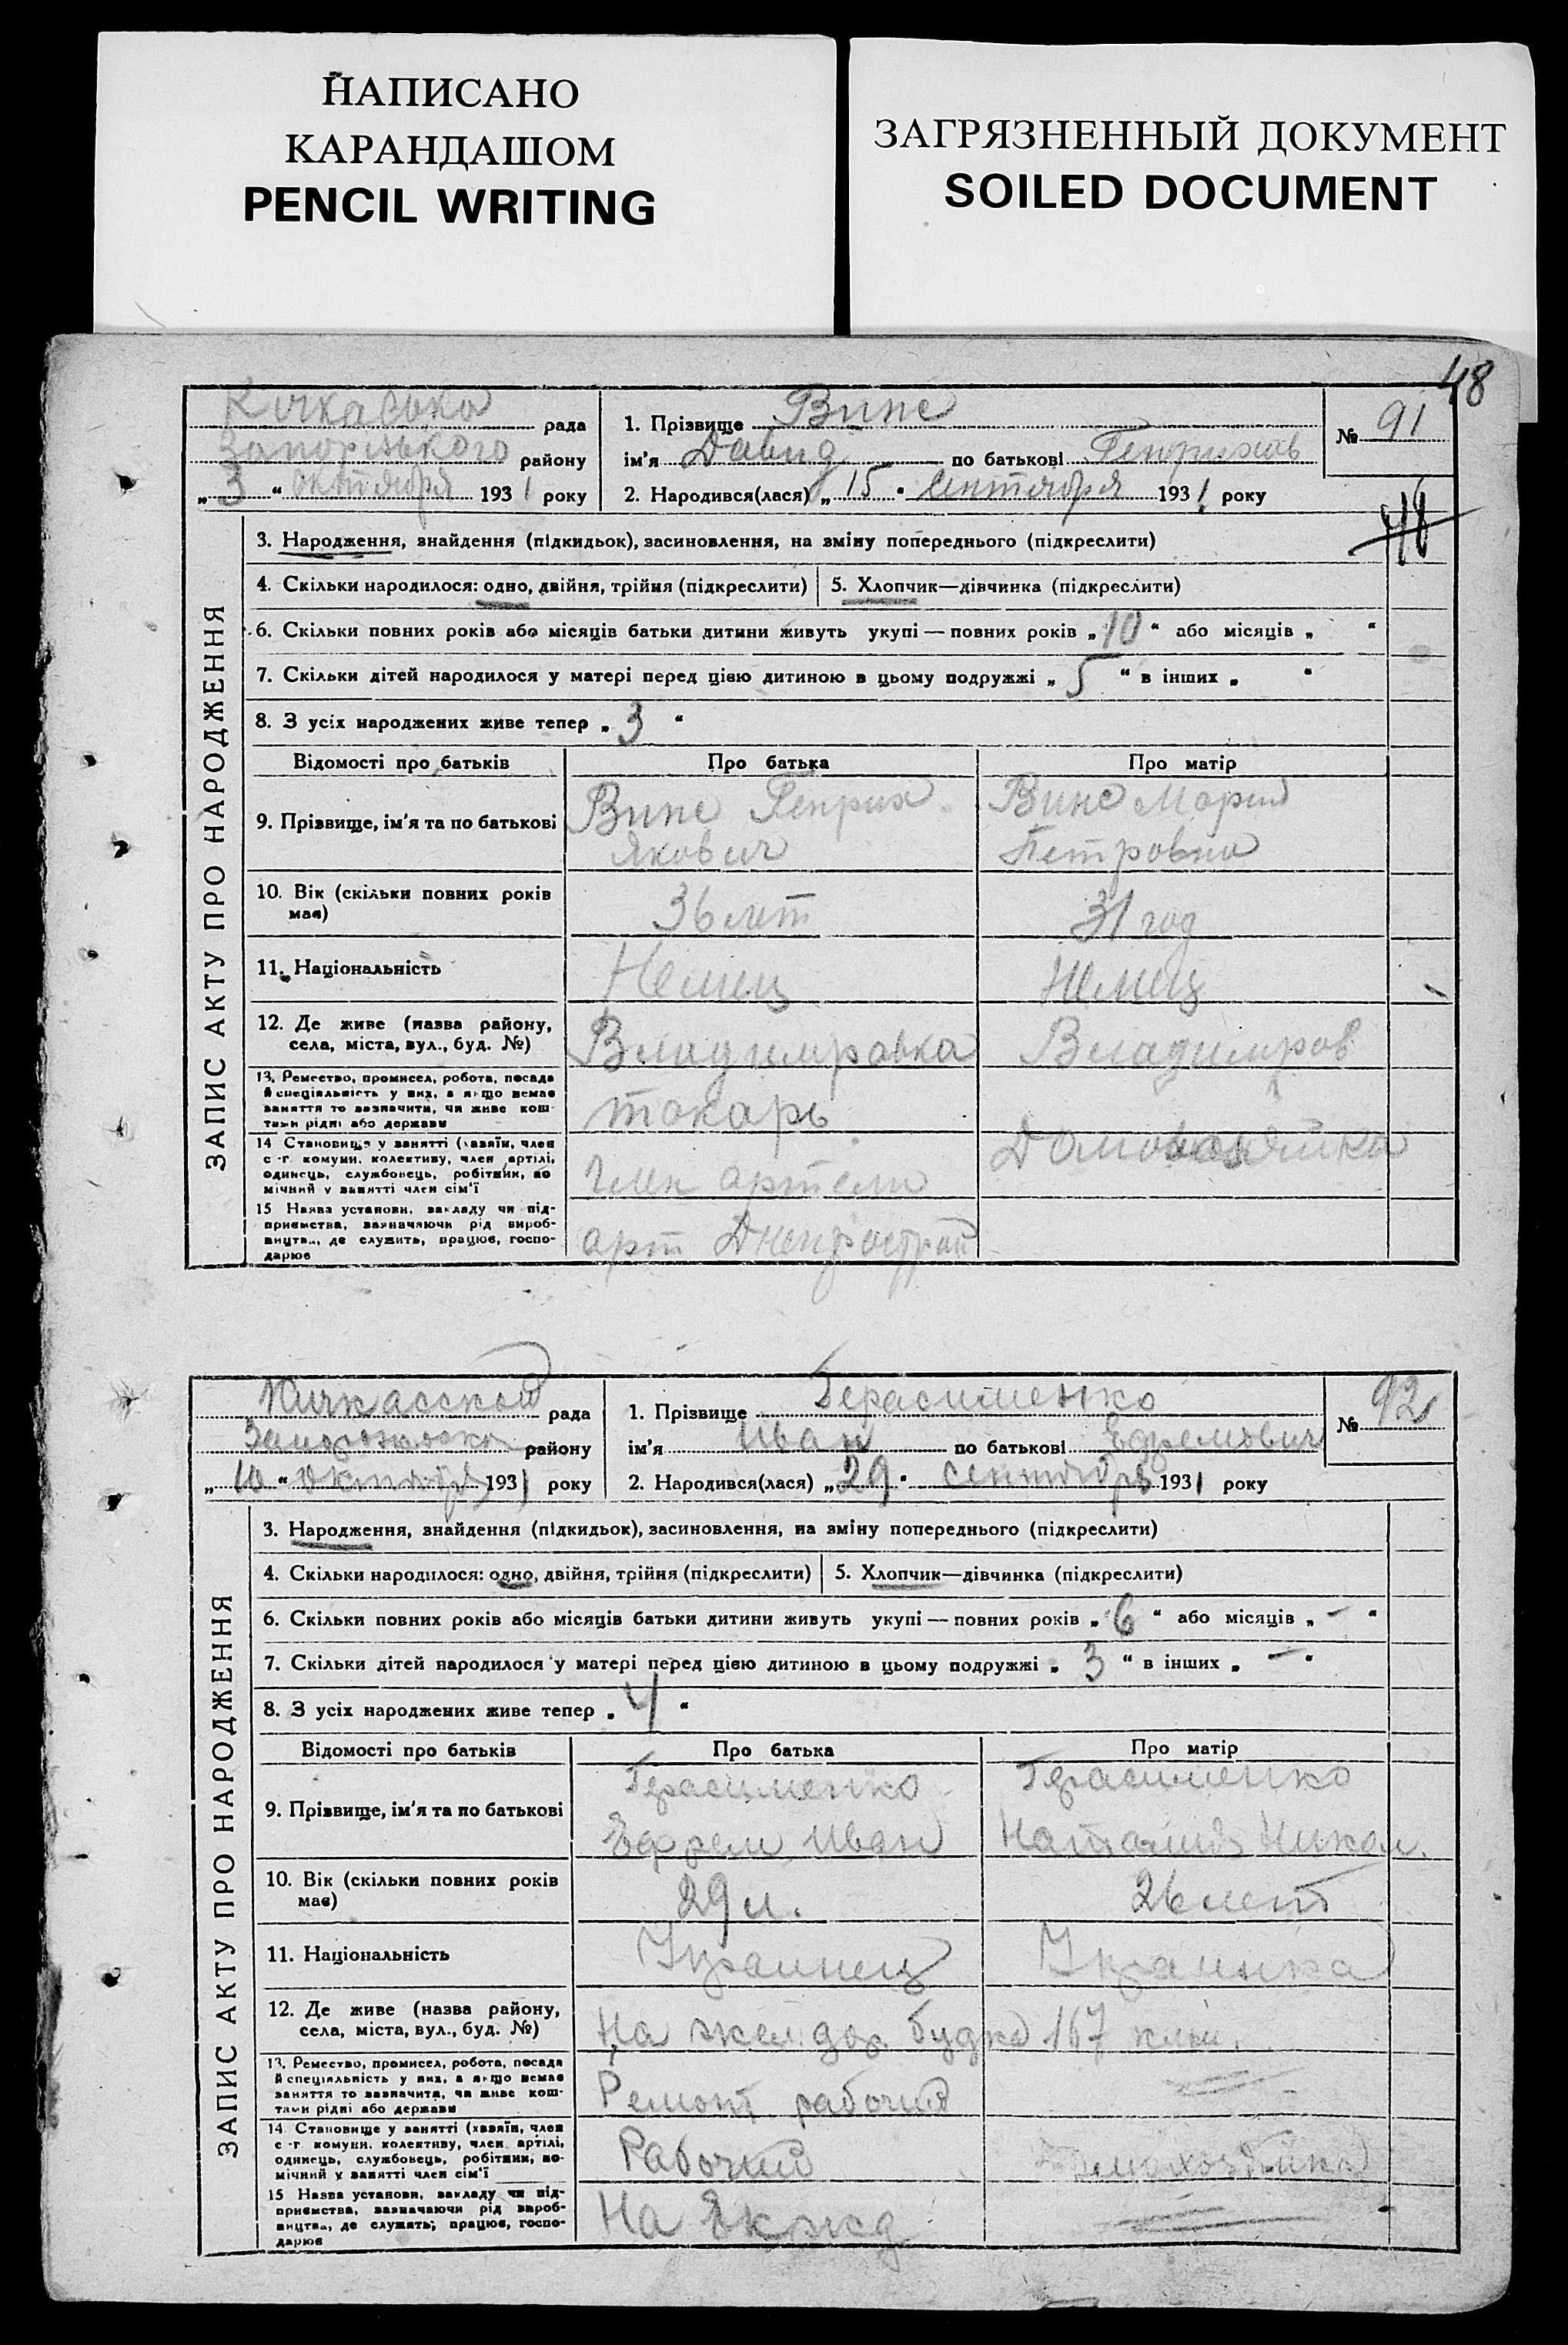 НАПИСАНО
КАРАНДАШОМ
PENCIL WRITING
ЗАГРЯЗНЕННЫЙ ДОКУМЕНТ
SOILED DOCUMENT
48
Кичкаська рада
Запорізького району
„3“ октября 1931 року
1. Прізвище Винс
ім'я Давид по батькові Генрихов
2. Народився(лася) „15“ сентября 1931 року
№ 91
48
ЗАПИС АКТУ ПРО НАРОДЖЕННЯ
3. Народження, знайдення (підкидьок), засиновлення, на зміну попереднього (підкреслити)
4. Скільки народилося: одно, двійня, трійня (підкреслити) 5. Хлопчик—дівчинка (підкреслити)
6. Скільки повних років або місяців батьки дитини живуть укупі — повних років „10“ або місяців „ “
7. Скільки дітей народилося у матері перед цією дитиною в цьому подружжі „5“ в інших „ “
8. З усіх народжених живе тепер „3“
Відомості про батьків Про батька Про матір
9. Прізвище, ім'я та по батькові Винс Генрих Якович Винс Мария Петровна
10. Вік (скільки повних років має) 36 лет 31 год
11. Національність Немец Немец
12. Де живе (назва району, села, міста, вул., буд. №) Владимировка Владимиров
13. Ремество, промисел, робота, посада й спеціяльність у них, а якщо немає заняття то зазначити, чи живе коштами рідні або держави токарь
14 Становище у занятті (хазяїн, член с.-г. комуни, колективу, член артілі, одинець, службовець, робітник, помічний у занятті член сім'ї член артели Домохозяйка
15 Назва установи, закладу чи підприємства, зазначаючи рід виробництва, де служить, працює, господарює арт Днепрострой
Кичкасской рада
району
„10“ октября 1931 року
1. Прізвище Герасименко
ім'я Иван по батькові Ефремович
2. Народився(лася) „29“ сентября 1931 року
№ 92
ЗАПИС АКТУ ПРО НАРОДЖЕННЯ
3. Народження, знайдення (підкидьок), засиновлення, на зміну попереднього (підкреслити)
4. Скільки народилося: одно, двійня, трійня (підкреслити) 5. Хлопчик—дівчинка (підкреслити)
6. Скільки повних років або місяців батьки дитини живуть укупі — повних років „6“ або місяців „-“
7. Скільки дітей народилося у матері перед цією дитиною в цьому подружжі „3“ в інших „-“
8. З усіх народжених живе тепер „4“
Відомості про батьків Про батька Про матір
9. Прізвище, ім'я та по батькові Герасименко Ефрем Иван Герасименко Наталия Никол.
10. Вік (скільки повних років має) 29 л. 26 лет
11. Національність Украинец Украинка
12. Де живе (назва району, села, міста, вул., буд. №) На жел. дор. будка 167 клм.
13. Ремество, промисел, робота, посада й спеціяльність у них, а якщо немає заняття то зазначити, чи живе коштами рідні або держави Ремонт. рабочий
14 Становище у занятті (хазяїн, член с.-г. комуни, колективу, член артілі, одинець, службовець, робітник, помічний у занятті член сім'ї Рабочий Домохозяйка
15 Назва установи, закладу чи підприємства, зазначаючи рід виробництва, де служить, працює, господарює На Екжд